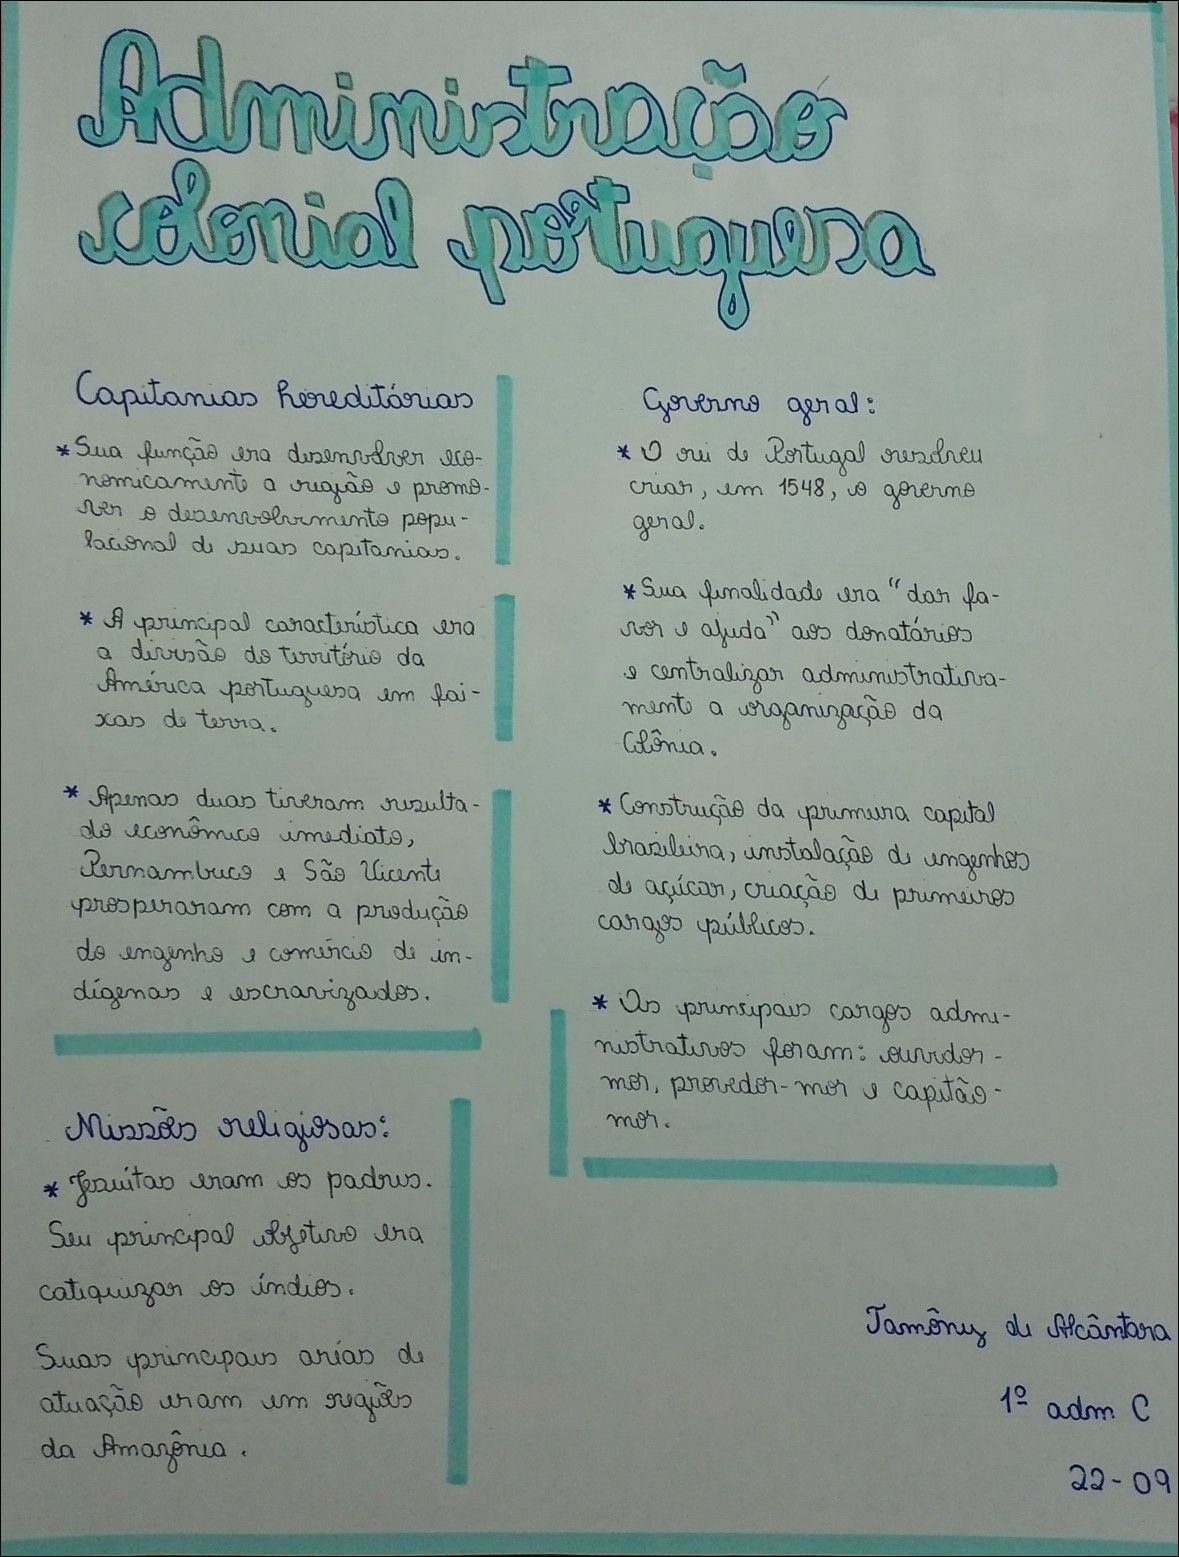 Administração
colonial portuguesa
Capitanias hereditárias
* Sua função era desenvolver eco-
nomicamente a região e promo-
ver o desenvolvimento popu-
lacional de suas capitanias.
* A principal característica era
a divisão do território da
América portuguesa em fai-
xas de terra.
* Apenas duas tiveram resulta-
do econômico imediato,
Pernambuco e São Vicente
prosperaram com a produção
do engenho e comércio de in-
dígenas e escravizados.
Missões religiosas:
* Jesuítas eram os padres.
Seu principal objetivo era
catequizar os índios.
Suas principais aréas de
atuação eram em regiões
da Amazônia.
Governo geral:
* O rei de Portugal resolveu
criar, em 1548, o governo
geral.
* Sua finalidade era "dar fa-
vor e ajuda" aos donatários
e centralizar administrativa-
mente a organização da
Colônia.
* Construção da primeira capital
brasileira, instalação de engenhos
de açúcar, criação de primeiros
cargos públicos.
* Os principais cargos admi-
nistrativos foram: ouvidor-
mor, provedor-mor e capitão-
mor.
Tamôny de Alcântara
1º adm C
22-09